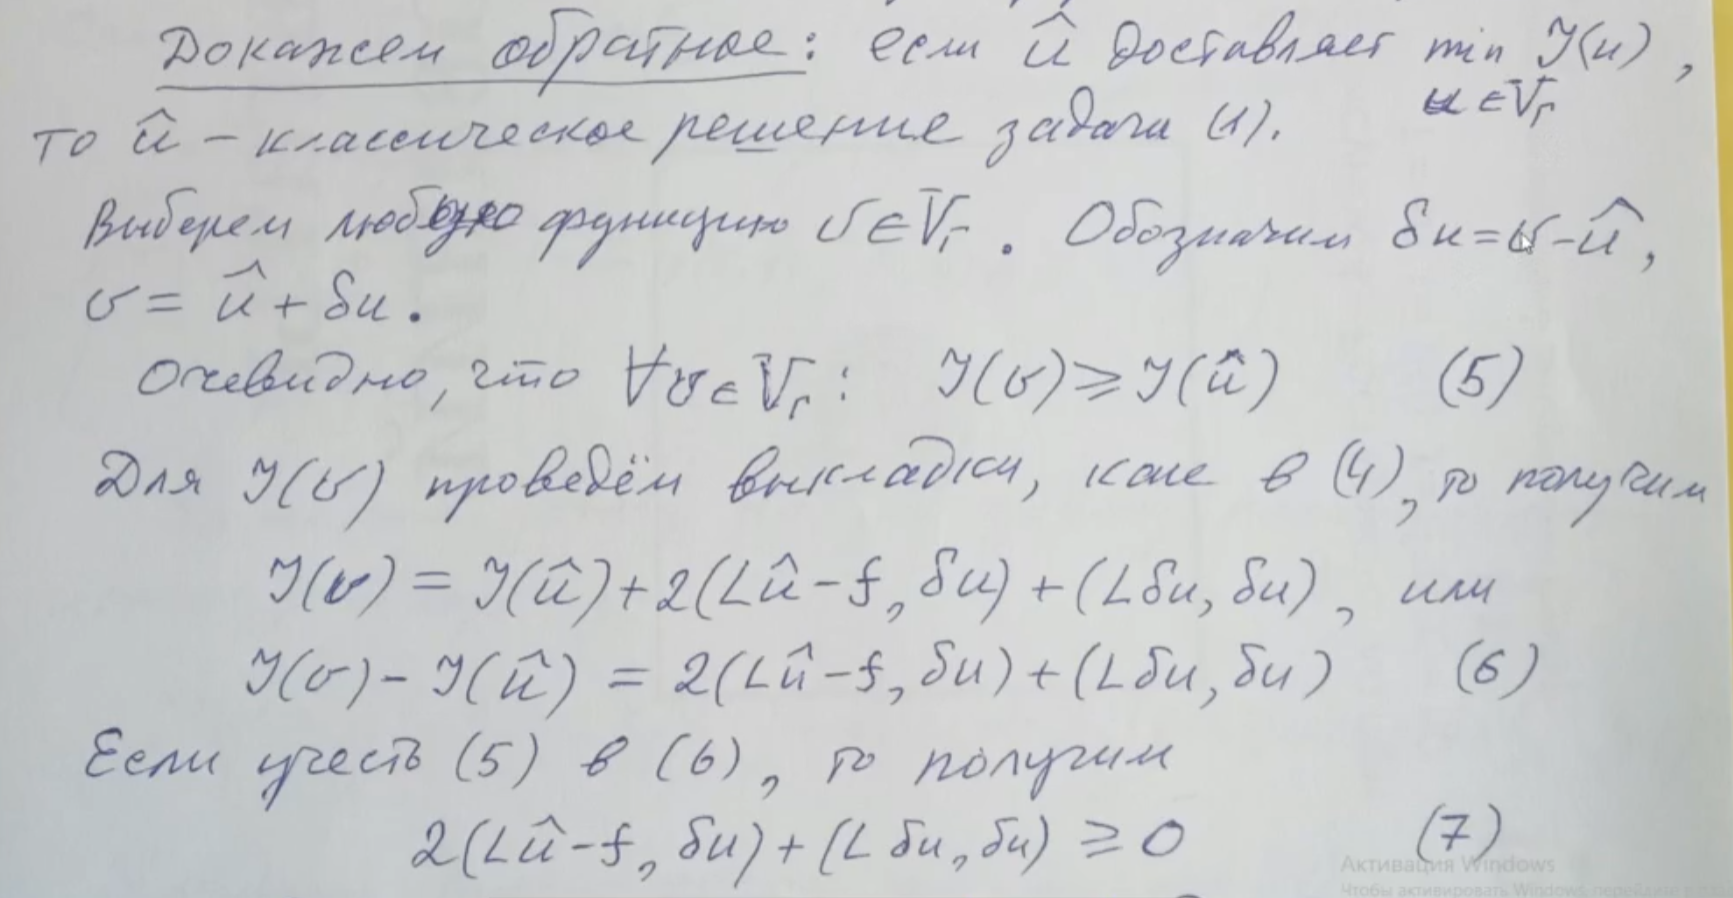 Докажем обратное: если û доставляет min J(u),
u ∈ V_Г
то û – классическое решение задачи (1).
Выберем любую функцию v ∈ V_Г. Обозначим δu = v – û,
v = û + δu.
Очевидно, что ∀v ∈ V_Г: J(v) ⩾ J(û) (5)
Для J(v) проведём выкладки, как в (4), то получим
J(v) = J(û) + 2(Lû – f, δu) + (Lδu, δu), или
J(v) – J(û) = 2(Lû – f, δu) + (Lδu, δu) (6)
Если учесть (5) в (6), то получим
2(Lû – f, δu) + (Lδu, δu) ⩾ 0 (7)
Активация Windows
Чтобы активировать Windows, перейдите в